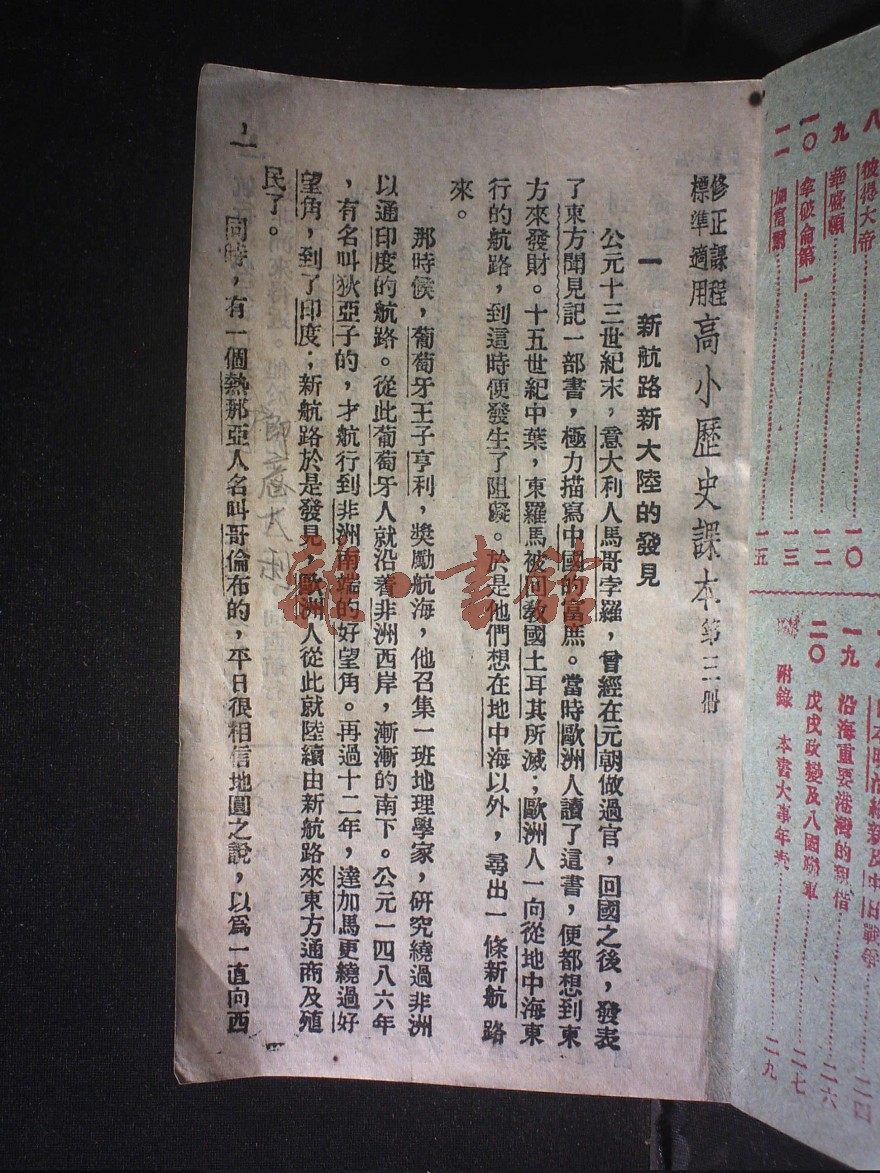 八　彼得大帝……一〇
九　華盛頓……一二
一〇　拿破侖第一……一三
一一　加富爾……一五
一九　沿海重要港灣的租借……二六
二〇　戊戌政變及八國聯軍……二七
附錄　本書大事年表……二九
修正課程標準適用 高小歷史課本 第三册
一　新航路新大陸的發見
公元十三世紀末，意大利人馬哥孛羅，曾經在元朝做過官，回國之後，發表
了東方聞見記一部書，極力描寫中國的富庶。當時歐洲人讀了這書，便都想到東
方來發財。十五世紀中葉，東羅馬被回教國土耳其所滅；歐洲人一向從地中海東
行的航路，到這時便發生了阻礙。於是他們想在地中海以外，尋出一條新航路
來。
那時候，葡萄牙王子亨利，獎勵航海，他召集一班地理學家，研究繞過非洲
以通印度的航路。從此葡萄牙人就沿着非洲西岸，漸漸的南下。公元一四八六年
，有名叫狄亞子的，才航行到非洲南端的好望角。再過十二年，達加馬更繞過好
望角，到了印度；新航路於是發見，歐洲人從此就陸續由新航路來東方通商及殖
民了。
同時，有一個熱那亞人名叫哥倫布的，平日很相信地圓之說，以爲一直向西
書館